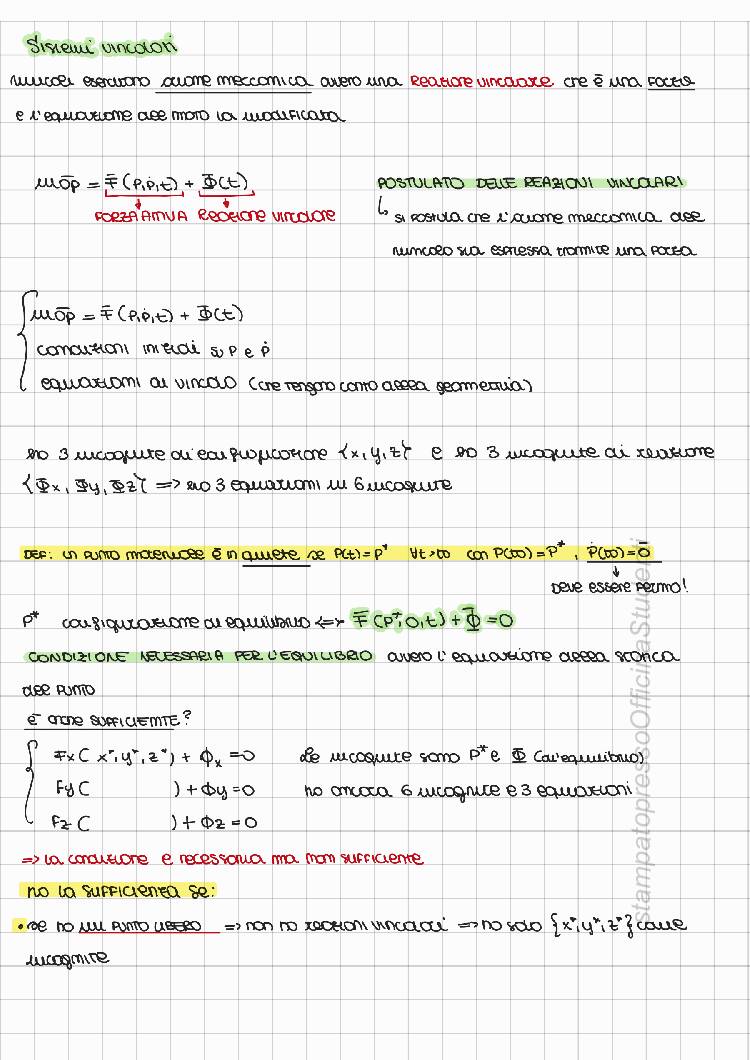 Sistemi vincolati
vincoli esercitano azione meccanica ovvero una REAZIONE VINCOLARE che è una FORZA
e l'equazione del moto la modificata
ma̅p = F̅(P,Ṗ,t) + Φ̅(t)
FORZA ATTIVA REAZIONE VINCOLARE
POSTULATO DELLE REAZIONI VINCOLARI
↳ si postula che l'azione meccanica del
vincolo sia espressa tramite una forza
ma̅p = F̅(P,Ṗ,t) + Φ̅(t)
condizioni iniziali su P e Ṗ
equazioni di vincolo (che tengono conto della geometria)
ho 3 incognite di configurazione {x,y,z} e ho 3 incognite di reazione
{Φx, Φy, Φz} => ho 3 equazioni in 6 incognite
DEF: un punto materiale è in quiete se P(t)=P* ∀t>t0 con P(t0)=P*, Ṗ(t0)=0̅
↓
DEVE ESSERE FERMO!
P* configurazione di equilibrio <=> F̅(P*,0,t) + Φ̅ = 0
CONDIZIONE NECESSARIA PER L'EQUILIBRIO ovvero l'equazione della statica
del punto
è anche SUFFICIENTE?
Fx( x*,y*,z*) + Φx = 0 Le incognite sono P* e Φ (all'equilibrio)
Fy( ) + Φy = 0 ho ancora 6 incognite e 3 equazioni
Fz( ) + Φz = 0
=> la condizione è necessaria ma non sufficiente
ho la SUFFICIENZA SE:
• se ho un PUNTO LIBERO => non ho reazioni vincolari => ho solo {x*,y*,z*} come
incognite
stampatopressoOfficinaStudenti